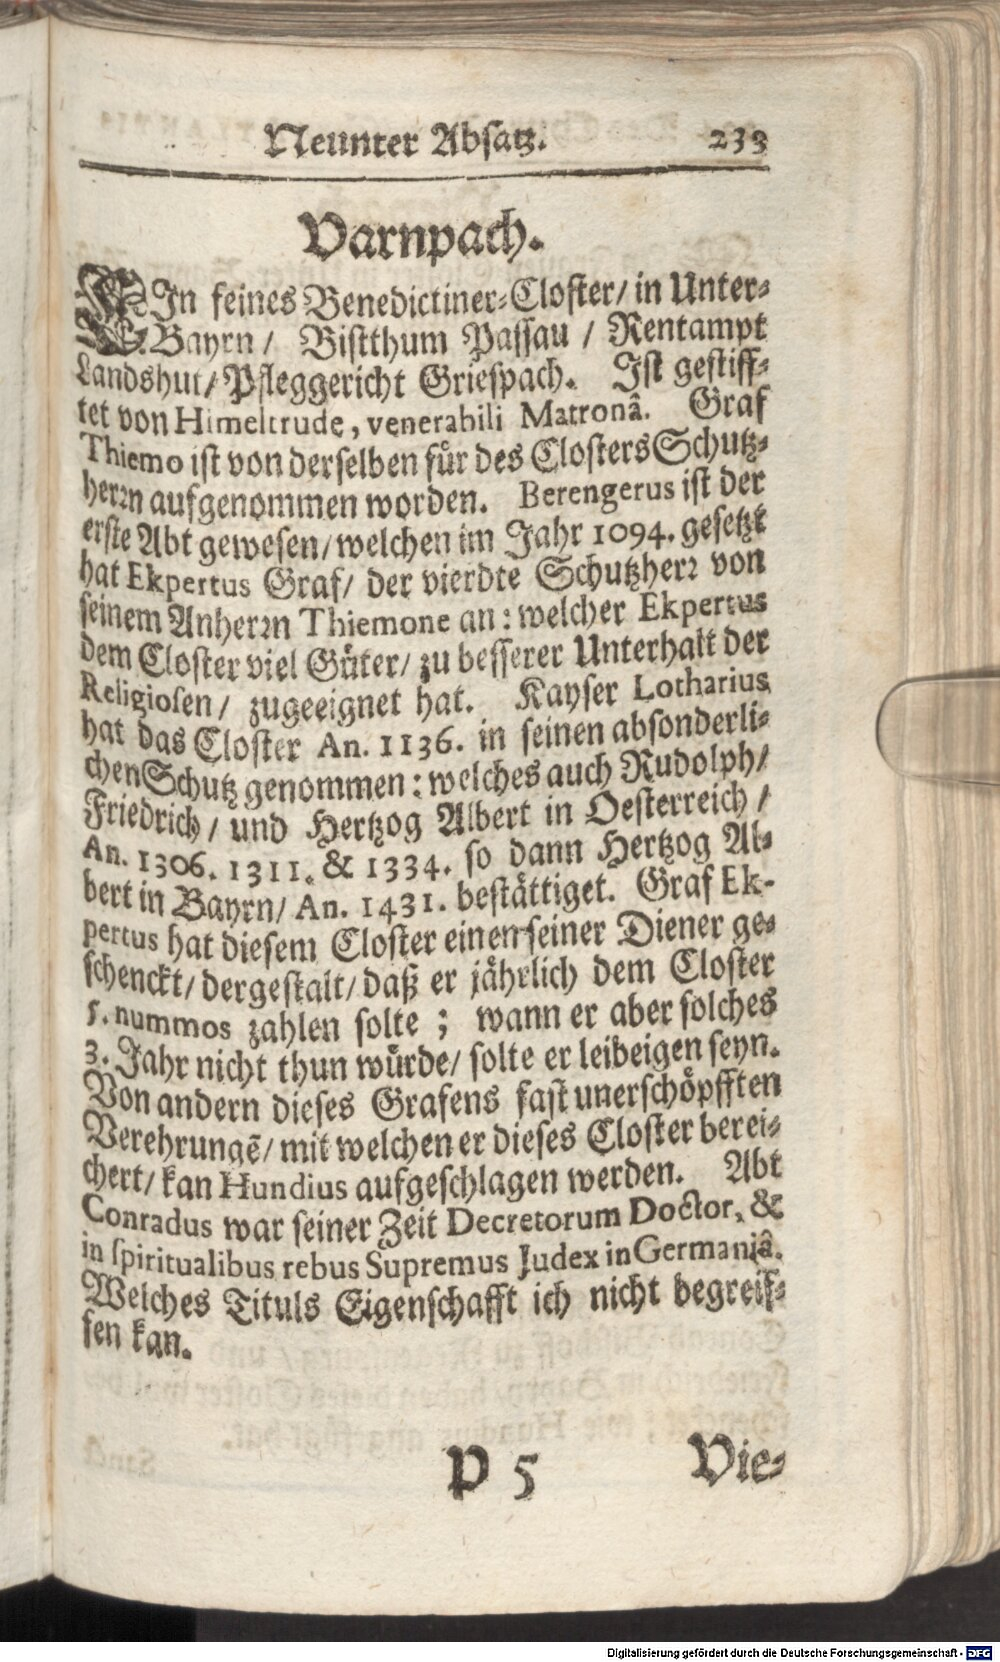 Neunter Absatz. 233
Varnpach.
EIn feines Benedictiner-Closter/ in Unter-
Bayrn/ Bistthum Passau / Rentampt
Landshut/ Pfleggericht Griespach. Ist gestiff-
tet von Himeltrude, venerabili Matronâ. Graf
Thiemo ist von derselben für des Closters Schutz-
herrn aufgenommen worden. Berengerus ist der
erste Abt gewesen/ welchen im Jahr 1094. gesetzt
hat Ekpertus Graf/ der vierdte Schutzherr von
seinem Anherrn Thiemone an: welcher Ekpertus
dem Closter viel Güter/ zu besserer Unterhalt der
Religiosen/ zugeeignet hat. Kayser Lotharius
hat das Closter An. 1136. in seinen absonderli-
chen Schutz genommen: welches auch Rudolph/
Friedrich/ und Hertzog Albert in Oesterreich /
An. 1306. 1311. & 1334. so dann Hertzog Al-
bert in Bayrn/ An. 1431. bestättiget. Graf Ek-
pertus hat diesem Closter einen seiner Diener ge-
schenckt/ dergestalt/ daß er jährlich dem Closter
5. nummos zahlen solte ; wann er aber solches
3. Jahr nicht thun würde/ solte er leibeigen seyn.
Von andern dieses Grafens fast unerschöpfften
Verehrungē/ mit welchen er dieses Closter berei-
chert/ kan Hundius aufgeschlagen werden. Abt
Conradus war seiner Zeit Decretorum Doctor, &
in spiritualibus rebus Supremus Judex in Germaniâ.
Welches Tituls Eigenschafft ich nicht begreif-
fen kan.
P 5 Vie-
Digitalisierung gefördert durch die Deutsche Forschungsgemeinschaft - DFG